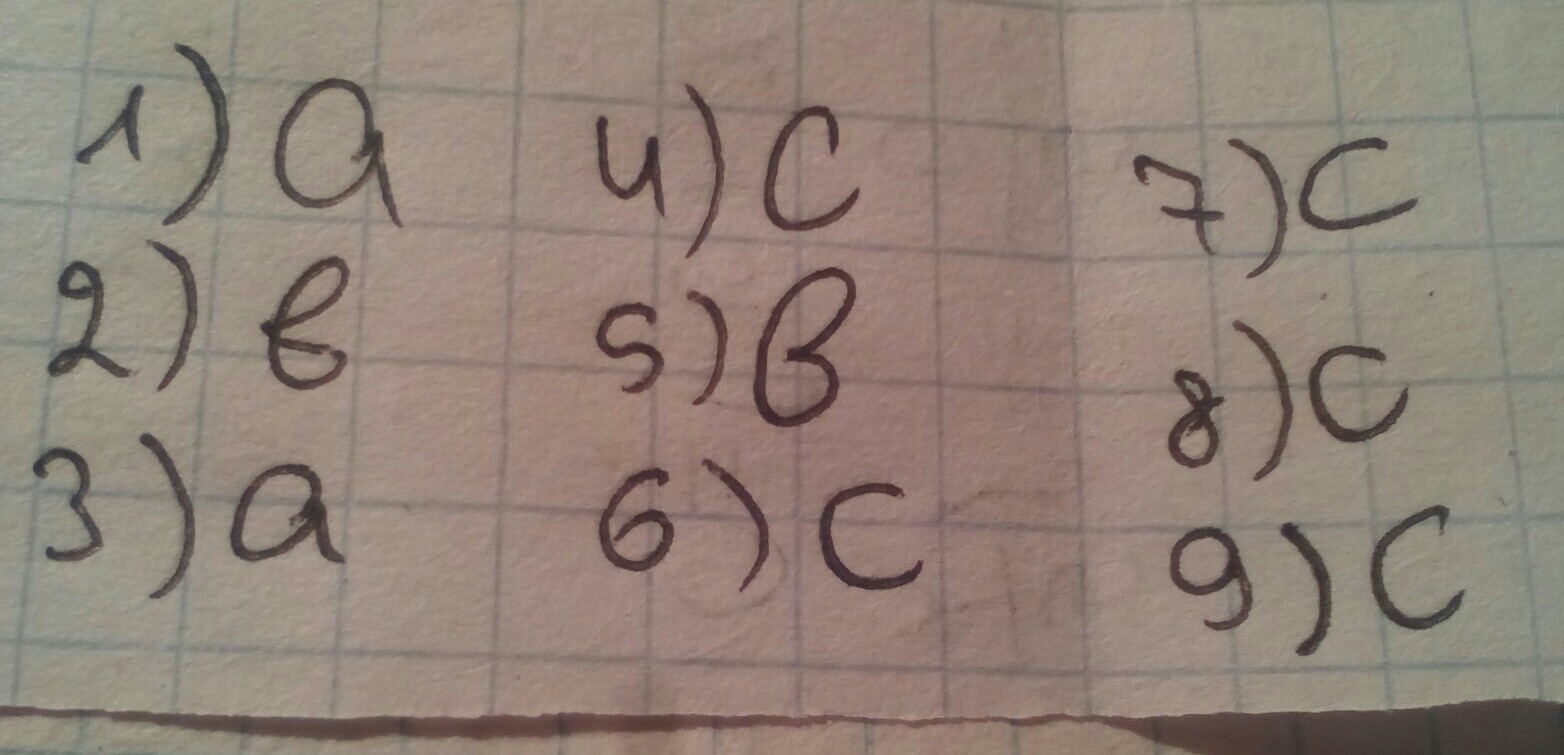 1) a
2) в
3) a
4) c
5) в
6) c
7) c
8) c
9) c